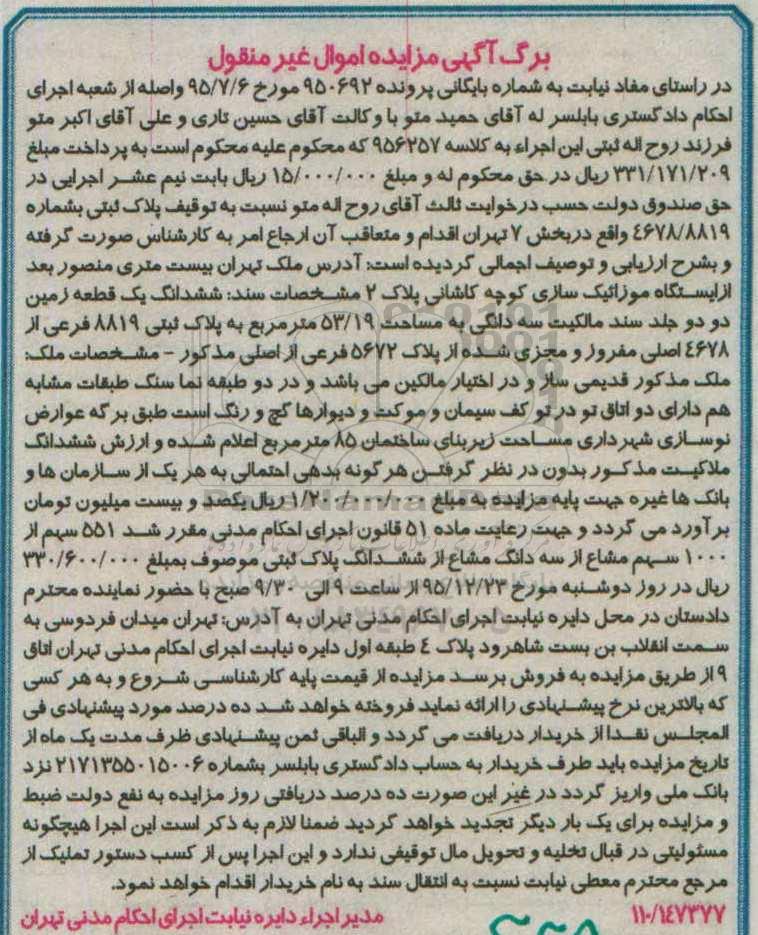 برگ آگهی مزایده اموال غیر منقول
در راستای مفاد نیابت به شماره بایگانی پرونده ۹۵۰۶۹۲ مورخ ۹۵/۷/۶ واصله از شعبه اجرای
احکام دادگستری بابلسر له آقای حمید متو با وکالت آقای حسین تاری و علی آقای اکبر متو
فرزند روح اله ثبتی این اجراء به کلاسه ۹۵۶۲۵۷ که محکوم علیه محکوم است به پرداخت مبلغ
۳۳۱/۱۷۱/۲۰۹ ریال در حق محکوم له و مبلغ ۱۵/۰۰۰/۰۰۰ ریال بابت نیم عشر اجرایی در
حق صندوق دولت حسب درخوایت ثالث آقای روح اله متو نسبت به توقیف پلاک ثبتی بشماره
۴۶۷۸/۸۸۱۹ واقع دربخش ۷ تهران اقدام و متعاقب آن ارجاع امر به کارشناس صورت گرفته
و بشرح ارزیابی و توصیف اجمالی گردیده است: آدرس ملک تهران بیست متری منصور بعد
ازایستگاه موزائیک سازی کوچه کاشانی پلاک ۲ مشخصات سند: ششدانگ یک قطعه زمین
دو دو جلد سند مالکیت سه دانگی به مساحت ۵۳/۱۹ مترمربع به پلاک ثبتی ۸۸۱۹ فرعی از
۴۶۷۸ اصلی مفروز و مجزی شده از پلاک ۵۶۷۲ فرعی از اصلی مذکور - مشخصات ملک:
ملک مذکور قدیمی ساز و در اختیار مالکین می باشد و در دو طبقه نما سنگ طبقات مشابه
هم دارای دو اتاق تو در تو کف سیمان و موکت و دیوارها گچ و رنگ است طبق برگه عوارض
نوسازی شهرداری مساحت زیربنای ساختمان ۸۵ مترمربع اعلام شده و ارزش ششدانگ
ملاکیت مذکور بدون در نظر گرفتن هر گونه بدهی احتمالی به هر یک از سازمان ها و
بانک ها غیره جهت پایه مزایده به مبلغ ۱/۲۰۰/۰۰۰/۰۰۰ ریال یکصد و بیست میلیون تومان
برآورد می گردد و جهت رعایت ماده ۵۱ قانون اجرای احکام مدنی مقرر شد ۵۵۱ سهم از
۱۰۰۰ سهم مشاع از سه دانگ مشاع از ششدانگ پلاک ثبتی موصوف بمبلغ ۳۳۰/۶۰۰/۰۰۰
ریال در روز دوشنبه مورخ ۹۵/۱۲/۲۳ از ساعت ۹ الی ۹/۳۰ صبح با حضور نماینده محترم
دادستان در محل دایره نیابت اجرای احکام مدنی تهران به آدرس: تهران میدان فردوسی به
سمت انقلاب بن بست شاهرود پلاک ۴ طبقه اول دایره نیابت اجرای احکام مدنی تهران اتاق
۹ از طریق مزایده به فروش برسد مزایده از قیمت پایه کارشناسی شروع و به هر کسی
که بالاترین نرخ پیشنهادی را ارائه نماید فروخته خواهد شد ده درصد مورد پیشنهادی فی
المجلس نقدا از خریدار دریافت می گردد و الباقی ثمن پیشنهادی ظرف مدت یک ماه از
تاریخ مزایده باید طرف خریدار به حساب دادگستری بابلسر بشماره ۲۱۷۱۳۵۵۰۱۵۰۰۶ نزد
بانک ملی واریز گردد در غیر این صورت ده درصد دریافتی روز مزایده به نفع دولت ضبط
و مزایده برای یک بار دیگر تجدید خواهد گردید ضمنا لازم به ذکر است این اجرا هیچگونه
مسئولیتی در قبال تخلیه و تحویل مال توقیفی ندارد و این اجرا پس از کسب دستور تملیک از
مرجع محترم معطی نیابت نسبت به انتقال سند به نام خریدار اقدام خواهد نمود.
۱۱۰/۱۴۷۳۷۷ مدیر اجراء دایره نیابت اجرای احکام مدنی تهران